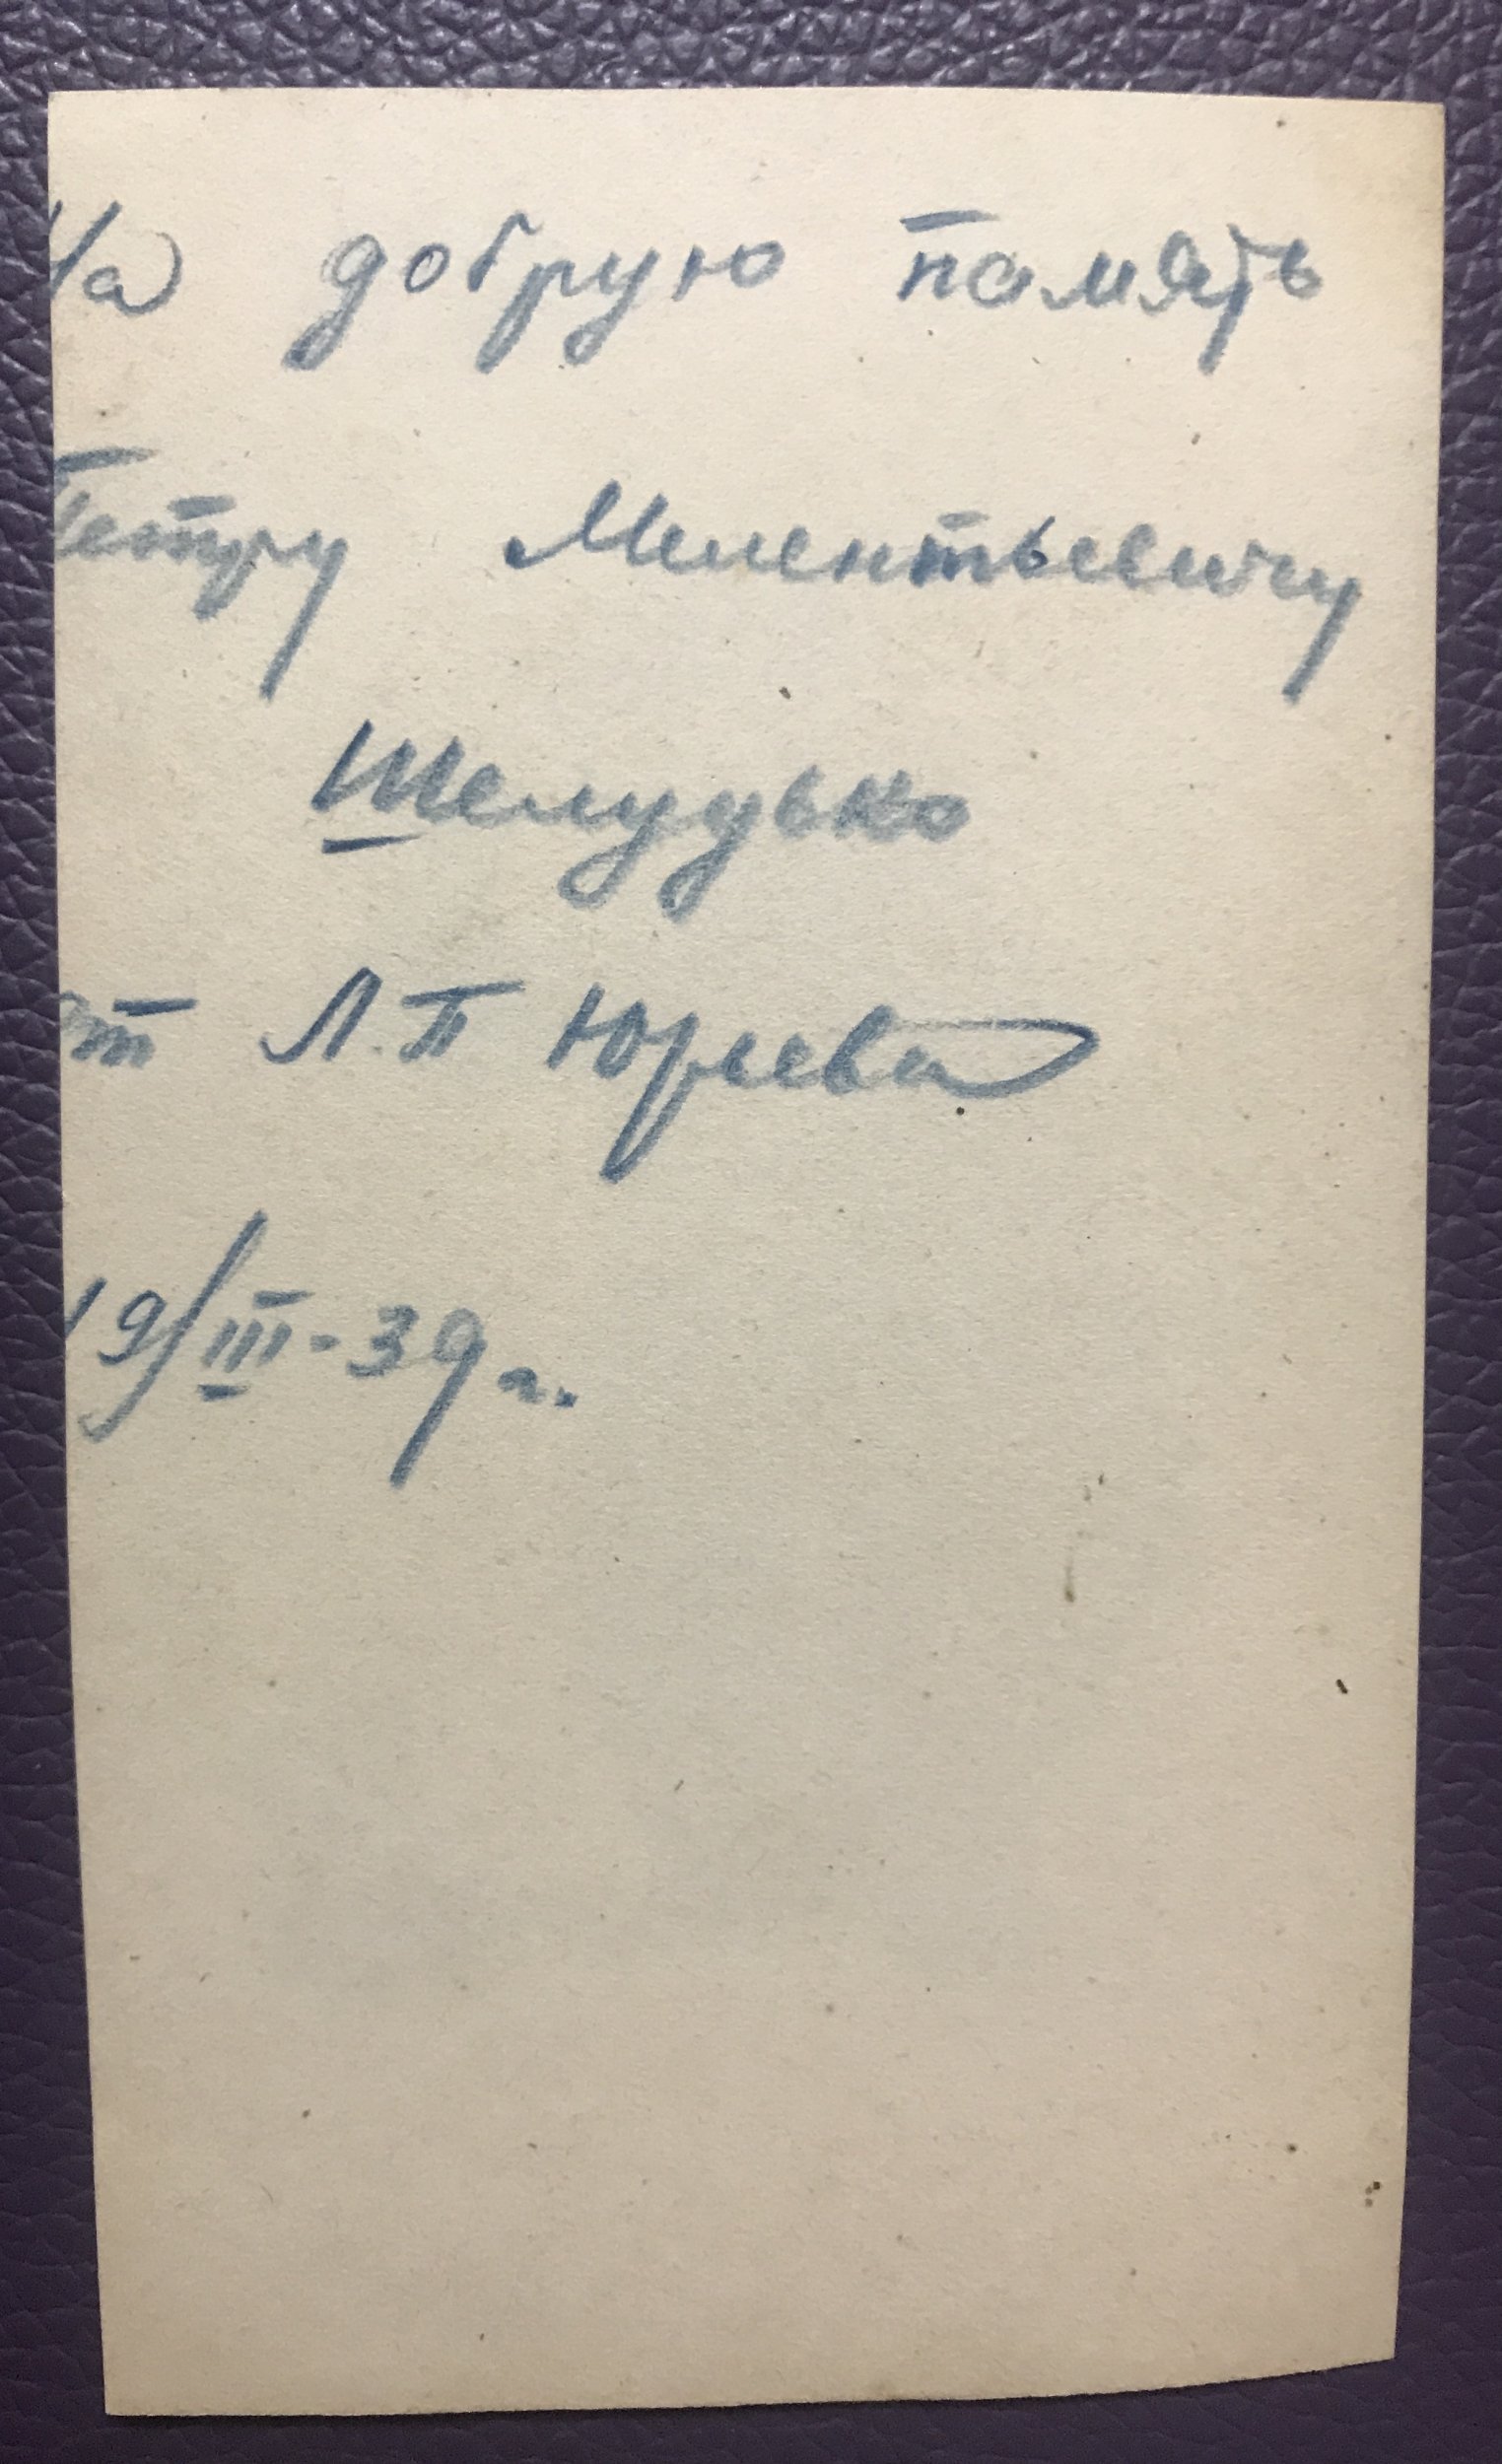 На добрую память
Петру Мелентьевичу
Шелудько
от Л.П Юрьева
19/III-39 г.